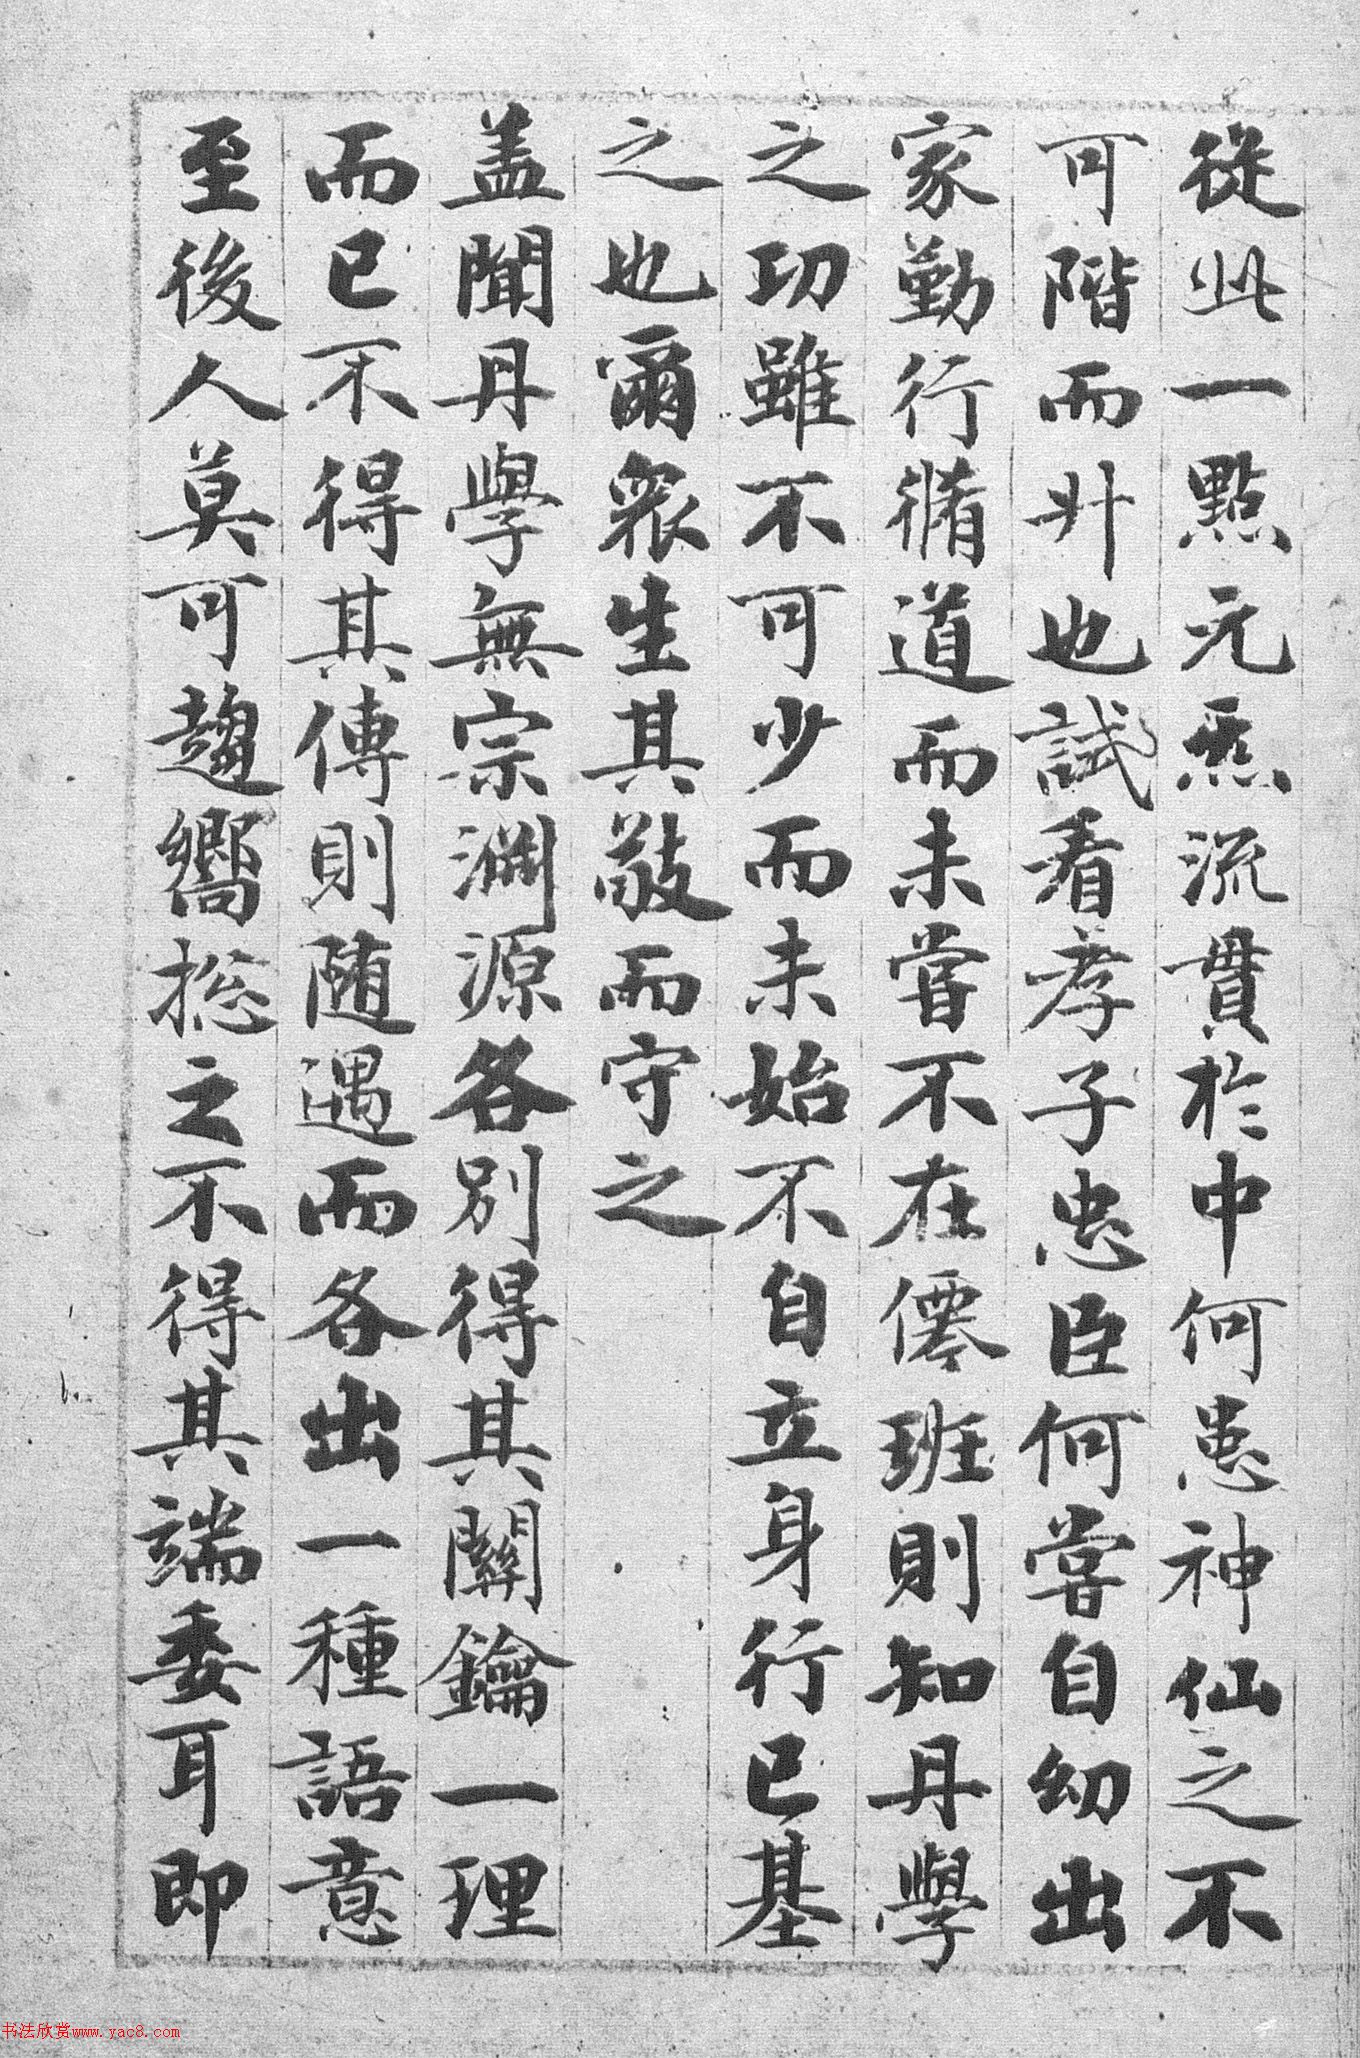 從此一點元炁流貫於中何患神仙之不
可階而升也試看孝子忠臣何嘗自幼出
家勤行脩道而未嘗不在僊班則知丹學
之功雖不可少而未始不自立身行已基
之也爾衆生其敬而守之
盖聞丹學無宗淵源各別得其關鑰一理
而已不得其傳則隨遇而各出一種語意
至後人莫可趨嚮揔之不得其端委耳即
书法欣赏www.yac8.com